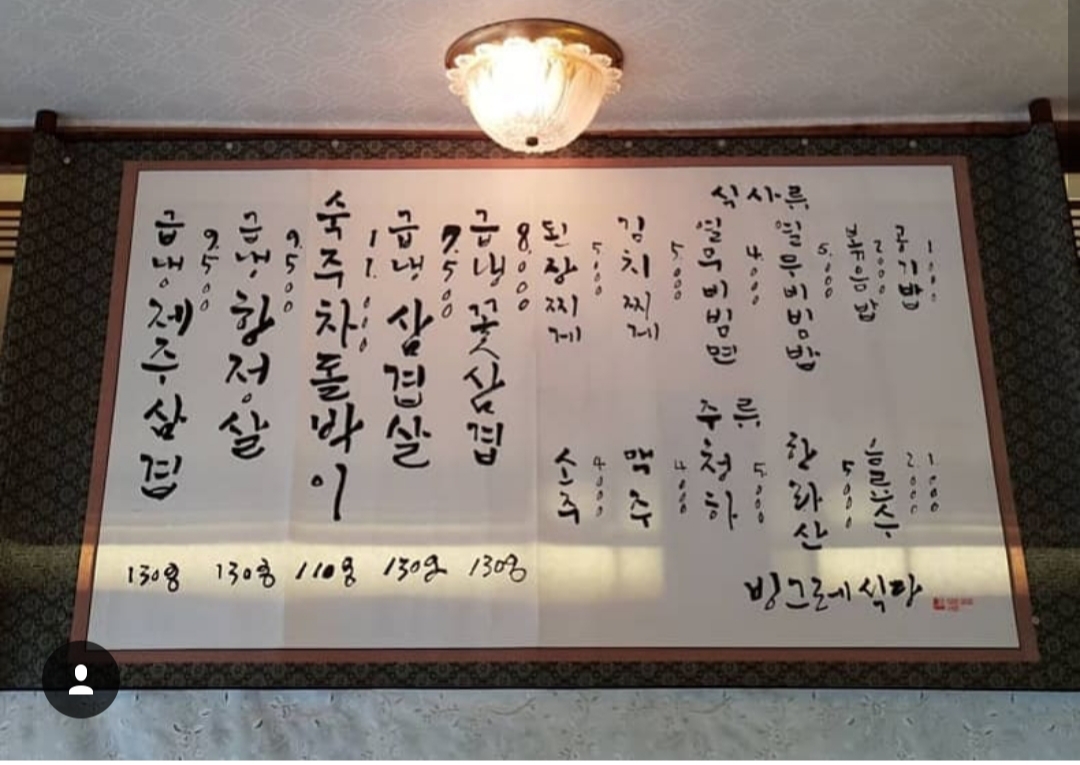 급냉꽃삼겹
8.000
130g
급냉삼겹살
7.500
130g
숙주차돌박이
11.000
110g
급냉항정살
9.500
130g
급냉제주삼겹
9.500
130g
식사류
공기밥
1.000
볶음밥
2.000
열무비빔밥
5.000
열무비빔면
4.000
김치찌게
5.000
된장찌게
5.000
주류
음료수
1.000
2.000
한라산
5.000
청하
5.000
맥주
4.000
소주
4.000
빙그레식당